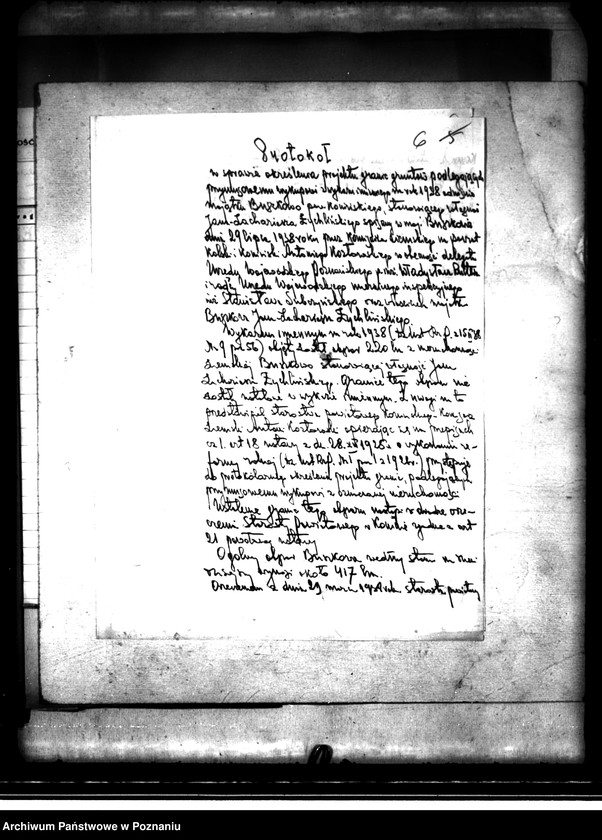 6 5
Protokół
w sprawie określenia projektu granic gruntów podlegających
przymusowemu wykupowi z wykazu imiennego na rok 1938 odnośnie
majątku Buszkowo pow. Konińskiego, stanowiącego własność
Jana-Zachariusza Żychlińskiego spisany w maj. Buszkowo
dnia 29 lipca 1938 roku przez Komisarza Ziemskiego na powiat
Kolski i Koniński Antoniego Kostarskiego w obecności delegata
Urzędu Wojewódzkiego Poznańskiego p. inż. Władysława
i radcy Urzędu Wojewódzkiego inspekcyjnego
inż. Stanisława oraz właściciela majątku
Buszkowo Jana Zachariusza Żychlińskiego.
Wykazem imiennym na rok 1938 (Dz. Ust. R.P. z 15 II 38
Nr. 9 poz. 56) objęty został obszar 220 ha z nieruchomości
ziemskiej Buszkowo stanowiącej własność Jana
Zachariusza Żychlińskiego. Granice tego obszaru nie
zostały ustalone w wykazie imiennym. Z uwagi na to
przedstawiciel starostwa powiatowego Komisarz
ziemski Antoni Kostarski opierając się na przepisach
cz. 1. art 18 ustawy z dn. 28.XII 1925 r. o wykonaniu re-
formy rolnej (Dz. Ust. R.P. Nr. 1 poz. 1 z 1926 r.) przystąpił
do protokolarnego określenia projektu granic, podlegającego
przymusowemu wykupowi z oznaczonej nieruchomości
Ustalenie granic tego obszaru nastąpi w drodze orze-
czenia Starosty Powiatowego w Koninie zgodnie z art
21 powołanej ustawy
Ogólny obszar Buszkowa według stanu na
wynosi około 417 ha.
Orzeczeniem z dnia 29 roku starosta powiatowy
Archiwum Państwowe w Poznaniu